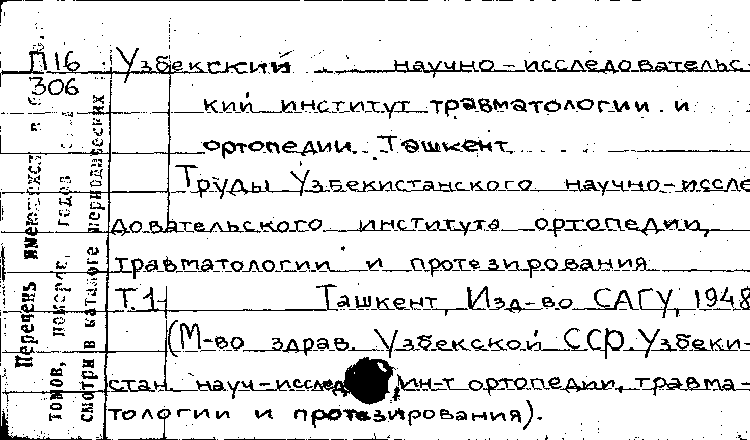 П16 Узбекский научно-исследовательс-
306
кий институт травматологии и
ортопедии. Ташкент
Труды Узбекистанского научно-иссле
довательского института ортопедии,
травматологии и протезирования
Т.1- Ташкент, Изд-во САГУ, 1948
(М-во здрав. Узбекской ССР. Узбеки-
стан. науч-исслед ин-т ортопедии, травма-
тологии и протезирования).
Перечень имеющихся в
томов, номеров, годов
смотри в каталоге периодических